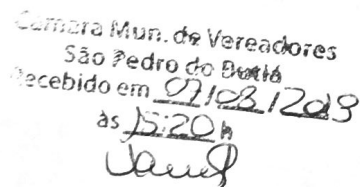 Câmara Mun. de Vereadores
São Pedro do Butiá
Recebido em 07/08/2019
às 15:20 h